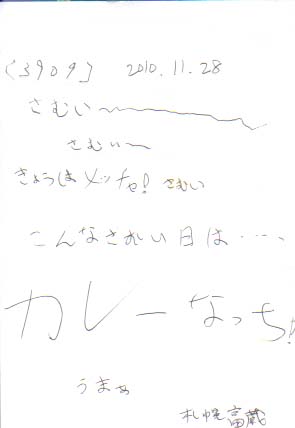 (3909) 2010.11.28
さむい〜
さむい〜
きょうはメッチャ!さむい
こんなさむい日は・・・・
カレーなっち!
うまぁ
札幌 富蔵